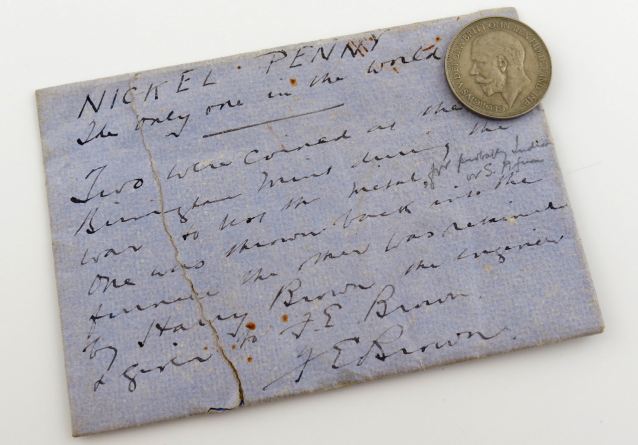 NICKEL. PENNY
The only one in the world
Two were coined at the
Birmingham Mint during the
war to test the metal, for probably India
or S. Africa
One was thrown back into the
furnace the other was retained
by Harry Brown the engineer
& given to F E Brown.
F E Brown.